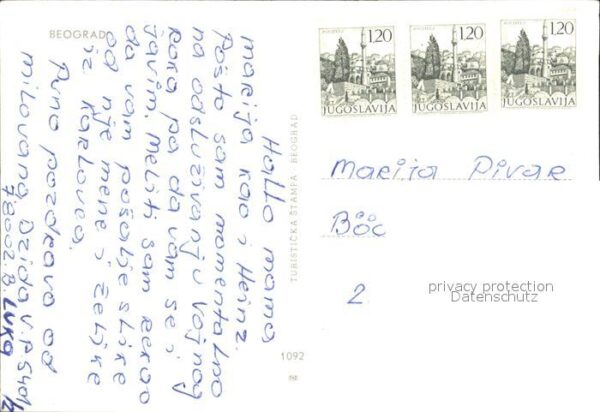 BEOGRAD
Hallo mama,
marija kao i Heinz.
Pošto sam momentalno
na odsluživanju Vojnog
roka pa da vam se i
javim. Meliti sam rekao
da vam pošalje slike
od nje mene i Željke
iz Karlovca.
Puno pozdrava od
milovana, Dzida V.P 5401/2
78002. B. LUKA
TURISTIČKA ŠTAMPA - BEOGRAD
1092
POČITELJ
1.20
JUGOSLAVIJA
POČITELJ
1.20
JUGOSLAVIJA
POČITELJ
1.20
JUGOSLAVIJA
Marija Pivar
Böc
2
privacy protection
Datenschutz